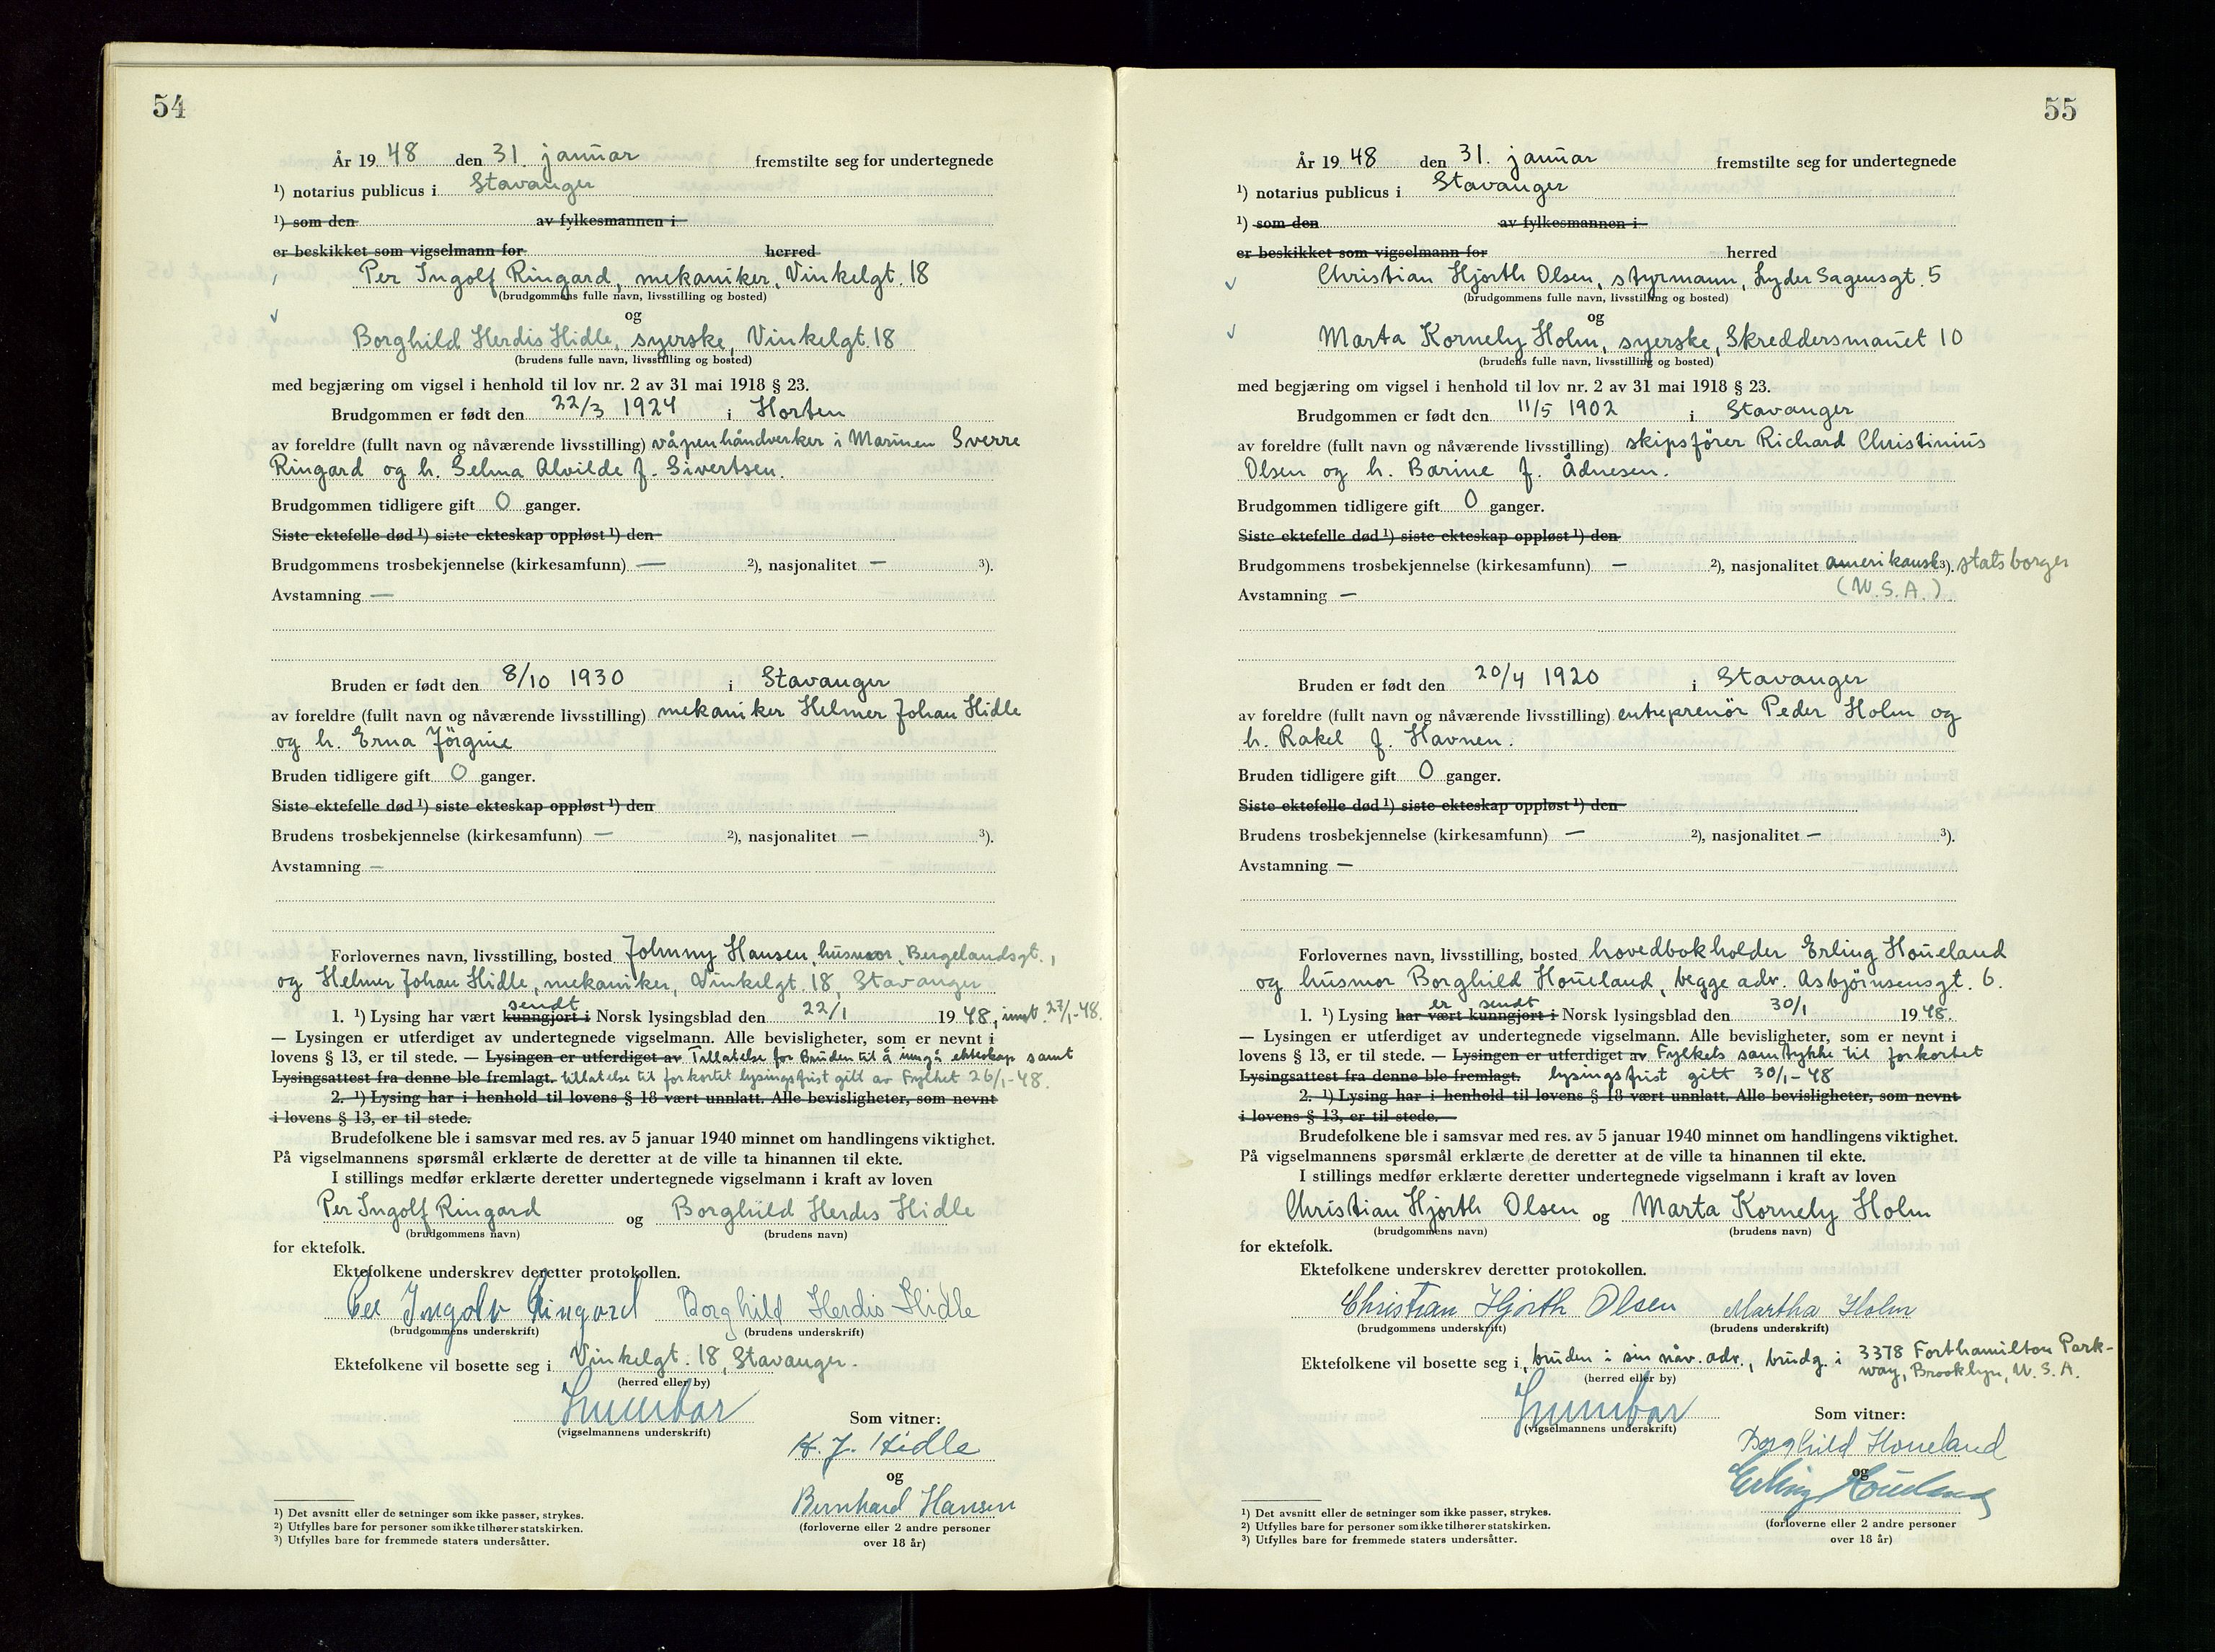 54
År 19 48 den 31. januar fremstilte seg for undertegnede
¹) notarius publicus i Stavanger
¹) som den av fylkesmannen i
er beskikket som vigselmann for herred
Per Ingolf Ringard, mekaniker, Vinkelgt. 18
(brudgommens fulle navn, livsstilling og bosted)
og
Borghild Herdis Hidle, syerske, Vinkelgt. 18
(brudens fulle navn, livsstilling og bosted)
med begjæring om vigsel i henhold til lov nr. 2 av 31 mai 1918 § 23.
Brudgommen er født den 22/3 1924 i Horten
av foreldre (fullt navn og nåværende livsstilling) våpenhåndverker i Marinen Sverre
Ringard og h. Selma Alvilde f. Sivertsen.
Brudgommen tidligere gift 0 ganger.
Siste ektefelle død ¹) siste ekteskap oppløst ¹) den
Brudgommens trosbekjennelse (kirkesamfunn) — ²), nasjonalitet — ³).
Avstamning —
Bruden er født den 8/10 1930 i Stavanger
av foreldre (fullt navn og nåværende livsstilling) mekaniker Helmer Johan Hidle
og h. Erna Jörgine
Bruden tidligere gift 0 ganger.
Siste ektefelle død ¹) siste ekteskap oppløst ¹) den
Brudens trosbekjennelse (kirkesamfunn) — ²), nasjonalitet — ³).
Avstamning —
Forlovernes navn, livsstilling, bosted Johnny Hansen, husmor, Bergelandsgt.,
og Helmer Johan Hidle, mekaniker, Vinkelgt. 18, Stavanger
sendt
1. ¹) Lysing har vært kunngjort i Norsk lysingsblad den 22/1 19 48, innt. 27/1-48.
— Lysingen er utferdiget av undertegnede vigselmann. Alle bevisligheter, som er nevnt i
lovens § 13, er til stede. — Lysingen er utferdiget av Tillatelse for Bruden til å inngå ekteskap samt
Lysingsattest fra denne ble fremlagt. tillatelse til forkortet lysingsfrist gitt av Fylket 26/1-48.
2. ¹) Lysing har i henhold til lovens § 18 vært unnlatt. Alle bevisligheter, som nevnt
i lovens § 13, er til stede.
Brudefolkene ble i samsvar med res. av 5 januar 1940 minnet om handlingens viktighet.
På vigselmannens spørsmål erklærte de deretter at de ville ta hinannen til ekte.
I stillings medfør erklærte deretter undertegnede vigselmann i kraft av loven
Per Ingolf Ringard og Borghild Herdis Hidle
(brudgommens navn) (brudens navn)
for ektefolk.
Ektefolkene underskrev deretter protokollen.
Per Ingolv Ringard Borghild Herdis Hidle
(brudgommens underskrift) (brudens underskrift)
Ektefolkene vil bosette seg i Vinkelgt. 18, Stavanger.
(herred eller by)
(vigselmannens underskrift)
Som vitner:
H. J. Hidle
og
Bernhard Hansen
(forloverne eller 2 andre personer
over 18 år)
¹) Det avsnitt eller de setninger som ikke passer, strykes.
²) Utfylles bare for personer som ikke tilhører statskirken.
³) Utfylles bare for fremmede staters undersåtter.
55
År 19 48 den 31. januar fremstilte seg for undertegnede
¹) notarius publicus i Stavanger
¹) som den av fylkesmannen i
er beskikket som vigselmann for herred
Christian Hjorth Olsen, styrmann, Lyder Sagensgt. 5
(brudgommens fulle navn, livsstilling og bosted)
og
Marta Kornely Holm, syerske, Skreddersmauet 10
(brudens fulle navn, livsstilling og bosted)
med begjæring om vigsel i henhold til lov nr. 2 av 31 mai 1918 § 23.
Brudgommen er født den 11/5 1902 i Stavanger
av foreldre (fullt navn og nåværende livsstilling) skipsfører Richard Christinius
Olsen og h. Barine f. Ådnesen.
Brudgommen tidligere gift 0 ganger.
Siste ektefelle død ¹) siste ekteskap oppløst ¹) den
Brudgommens trosbekjennelse (kirkesamfunn) — ²), nasjonalitet amerikansk ³). statsborger
Avstamning — (U.S.A.)
Bruden er født den 20/4 1920 i Stavanger
av foreldre (fullt navn og nåværende livsstilling) entreprenör Peder Holm og
h. Rakel f. Havnen.
Bruden tidligere gift 0 ganger.
Siste ektefelle død ¹) siste ekteskap oppløst ¹) den
Brudens trosbekjennelse (kirkesamfunn) — ²), nasjonalitet — ³).
Avstamning —
Forlovernes navn, livsstilling, bosted hovedbokholder Erling Houeland
og husmor Borghild Houeland, begge adr. Asbjörnsensgt. 6.
er sendt
1. ¹) Lysing har vært kunngjort i Norsk lysingsblad den 30/1 19 48.
— Lysingen er utferdiget av undertegnede vigselmann. Alle bevisligheter, som er nevnt i
lovens § 13, er til stede. — Lysingen er utferdiget av Fylkets samtykke til forkortet
Lysingsattest fra denne ble fremlagt. lysingsfrist gitt 30/1-48
2. ¹) Lysing har i henhold til lovens § 18 vært unnlatt. Alle bevisligheter, som nevnt
i lovens § 13, er til stede.
Brudefolkene ble i samsvar med res. av 5 januar 1940 minnet om handlingens viktighet.
På vigselmannens spørsmål erklærte de deretter at de ville ta hinannen til ekte.
I stillings medfør erklærte deretter undertegnede vigselmann i kraft av loven
Christian Hjorth Olsen og Marta Kornely Holm
(brudgommens navn) (brudens navn)
for ektefolk.
Ektefolkene underskrev deretter protokollen.
Christian Hjorth Olsen Martha Holm
(brudgommens underskrift) (brudens underskrift)
Ektefolkene vil bosette seg i bruden i sin nåv. adr., brudg. i 3378 Forthamilton Park-
way, Brooklyn, U.S.A.
(herred eller by)
(vigselmannens underskrift)
Som vitner:
Borghild Houeland
og
Erling Houeland
(forloverne eller 2 andre personer
over 18 år)
¹) Det avsnitt eller de setninger som ikke passer, strykes.
²) Utfylles bare for personer som ikke tilhører statskirken.
³) Utfylles bare for fremmede staters undersåtter.